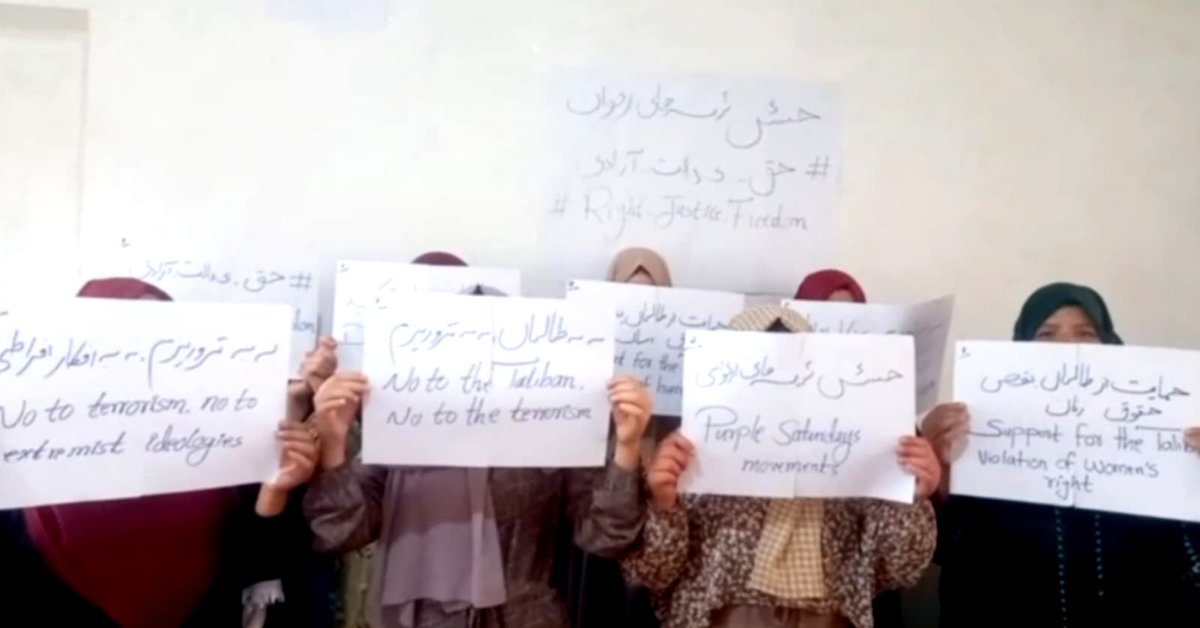 # حق - عدالت آزادی
# Right. Justice. Freedom
# حق. عدالت. آزادی
نه به تروریزم. نه به افکار افراطی
No to terrorism. no to
extremist ideologies
نه به طالبان. نه به تروریزم
No to the Taliban.
No to the terrorism
حمایت از طالبان
for the
of
جنبش شنبه های ارغوانی
Purple Saturdays
movements
حمایت از طالبان نقض
حقوق زنان
Support for the Talib
Violation of women's
right